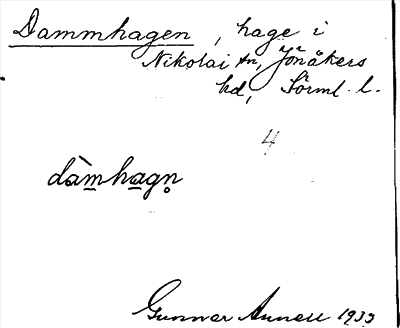 Dammhagen, hage i
Nikolai sn, Jönåkers
hd, Sörml. l.
4
dàm̲ha̲gn̥
Gunnar 1933